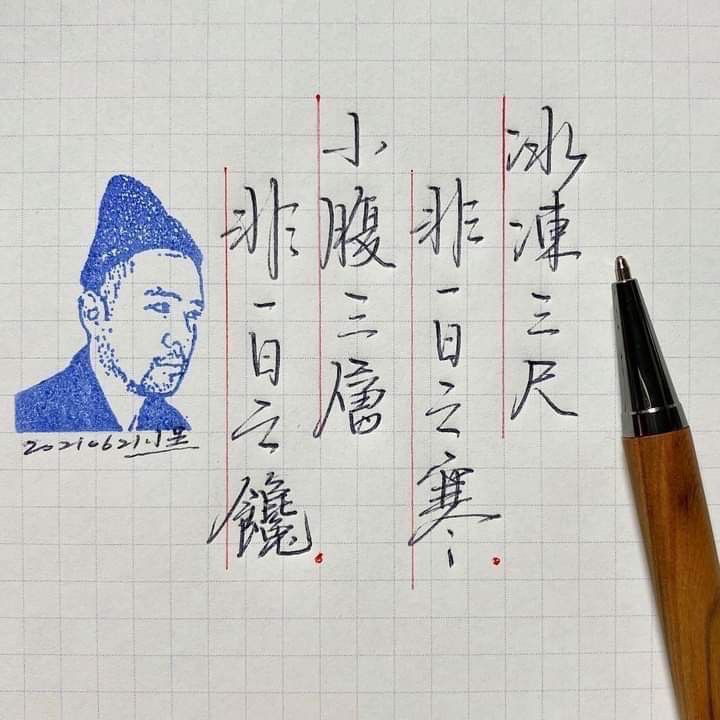 冰凍三尺
非一日之寒
小腹三層
非一日之饞
20210621小呈